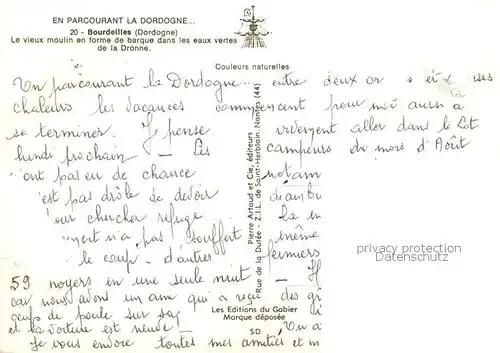 EN PARCOURANT LA DORDOGNE...
20 - Bourdeilles (Dordogne)
Le vieux moulin en forme de barque dans les eaux vertes
de la Dronne.
Couleurs naturelles
En parcourant la Dordogne... entre deux or et ses
chaleurs les vacances commencent pour moi aussi à
se terminer. Je pense vivement aller dans le Lot
lundi prochain - Les campeurs du mois d'Août
ont pas eu de chance notam
'est pas drôle de devoir déambu
our chercher refuge La m
n'a pas souffert même
le coup - d'autres fermiers
59 noyers en une seule nuit - H
car nous avons un ami qui a reçu des g
coups de poule sur sa
et la voiture est neuve - En a
Je vous envoie toutes mes amitiés et m
Pierre Artaud et Cie, éditeurs
Rue de la Dutée - Z.I.L. de Saint-Herblain, Nantes (44)
Les Editions du Gabier
Marque déposée
SD
privacy protection
Datenschutz